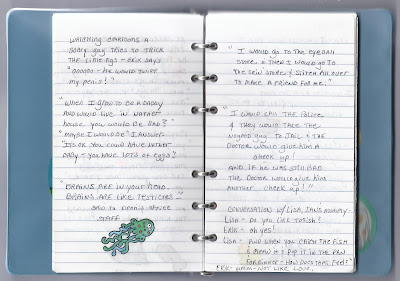 WATCHING CARTOONS A
SCARY GUY TRIES TO TRICK
THE LITTLE KIDS - ERIK SAYS
"OOOOO - HE WOULD SWIPE
MY PENIS!"
"WHEN I GROW TO BE A DADDY
AND WOULD LIVE IN
HOUSE YOU WOULD BE SAD?"
"MAYBE I WOULD BE" I ANSWER.
"IT'S OK YOU COULD HAVE
BABY - YOU HAVE LOTS OF EGGS!"
"BRAINS ARE IN YOUR HEAD.
BRAINS ARE LIKE TESTICLES"
SAID TO
STAFF
"I WOULD GO TO THE EYEBALL
STORE & THEN I WOULD GO TO
THE SEW STORE & STITCH ALL OVER
TO MAKE A FRIEND FOR ME."
"I WOULD CALL THE POLICE
& THEY WOULD TAKE THE
GUY TO JAIL & THE
DOCTOR WOULD GIVE HIM A
CHECK UP!
AND IF HE WAS STILL BAD
THE DOCTOR WOULD GIVE HIM
ANOTHER CHECK UP!"
CONVERSATION W/ LISA, IAN'S MOMMY -
LISA - DO YOU LIKE TO FISH?
ERIK - OH YES!
LISA - AND WHEN YOU CATCH THE FISH
& CLEAN IT & PUT IT IN THE PAN
FOR DINNER - HOW DOES THAT FEEL?
ERIK - HMM - NOT LIKE LOVE.